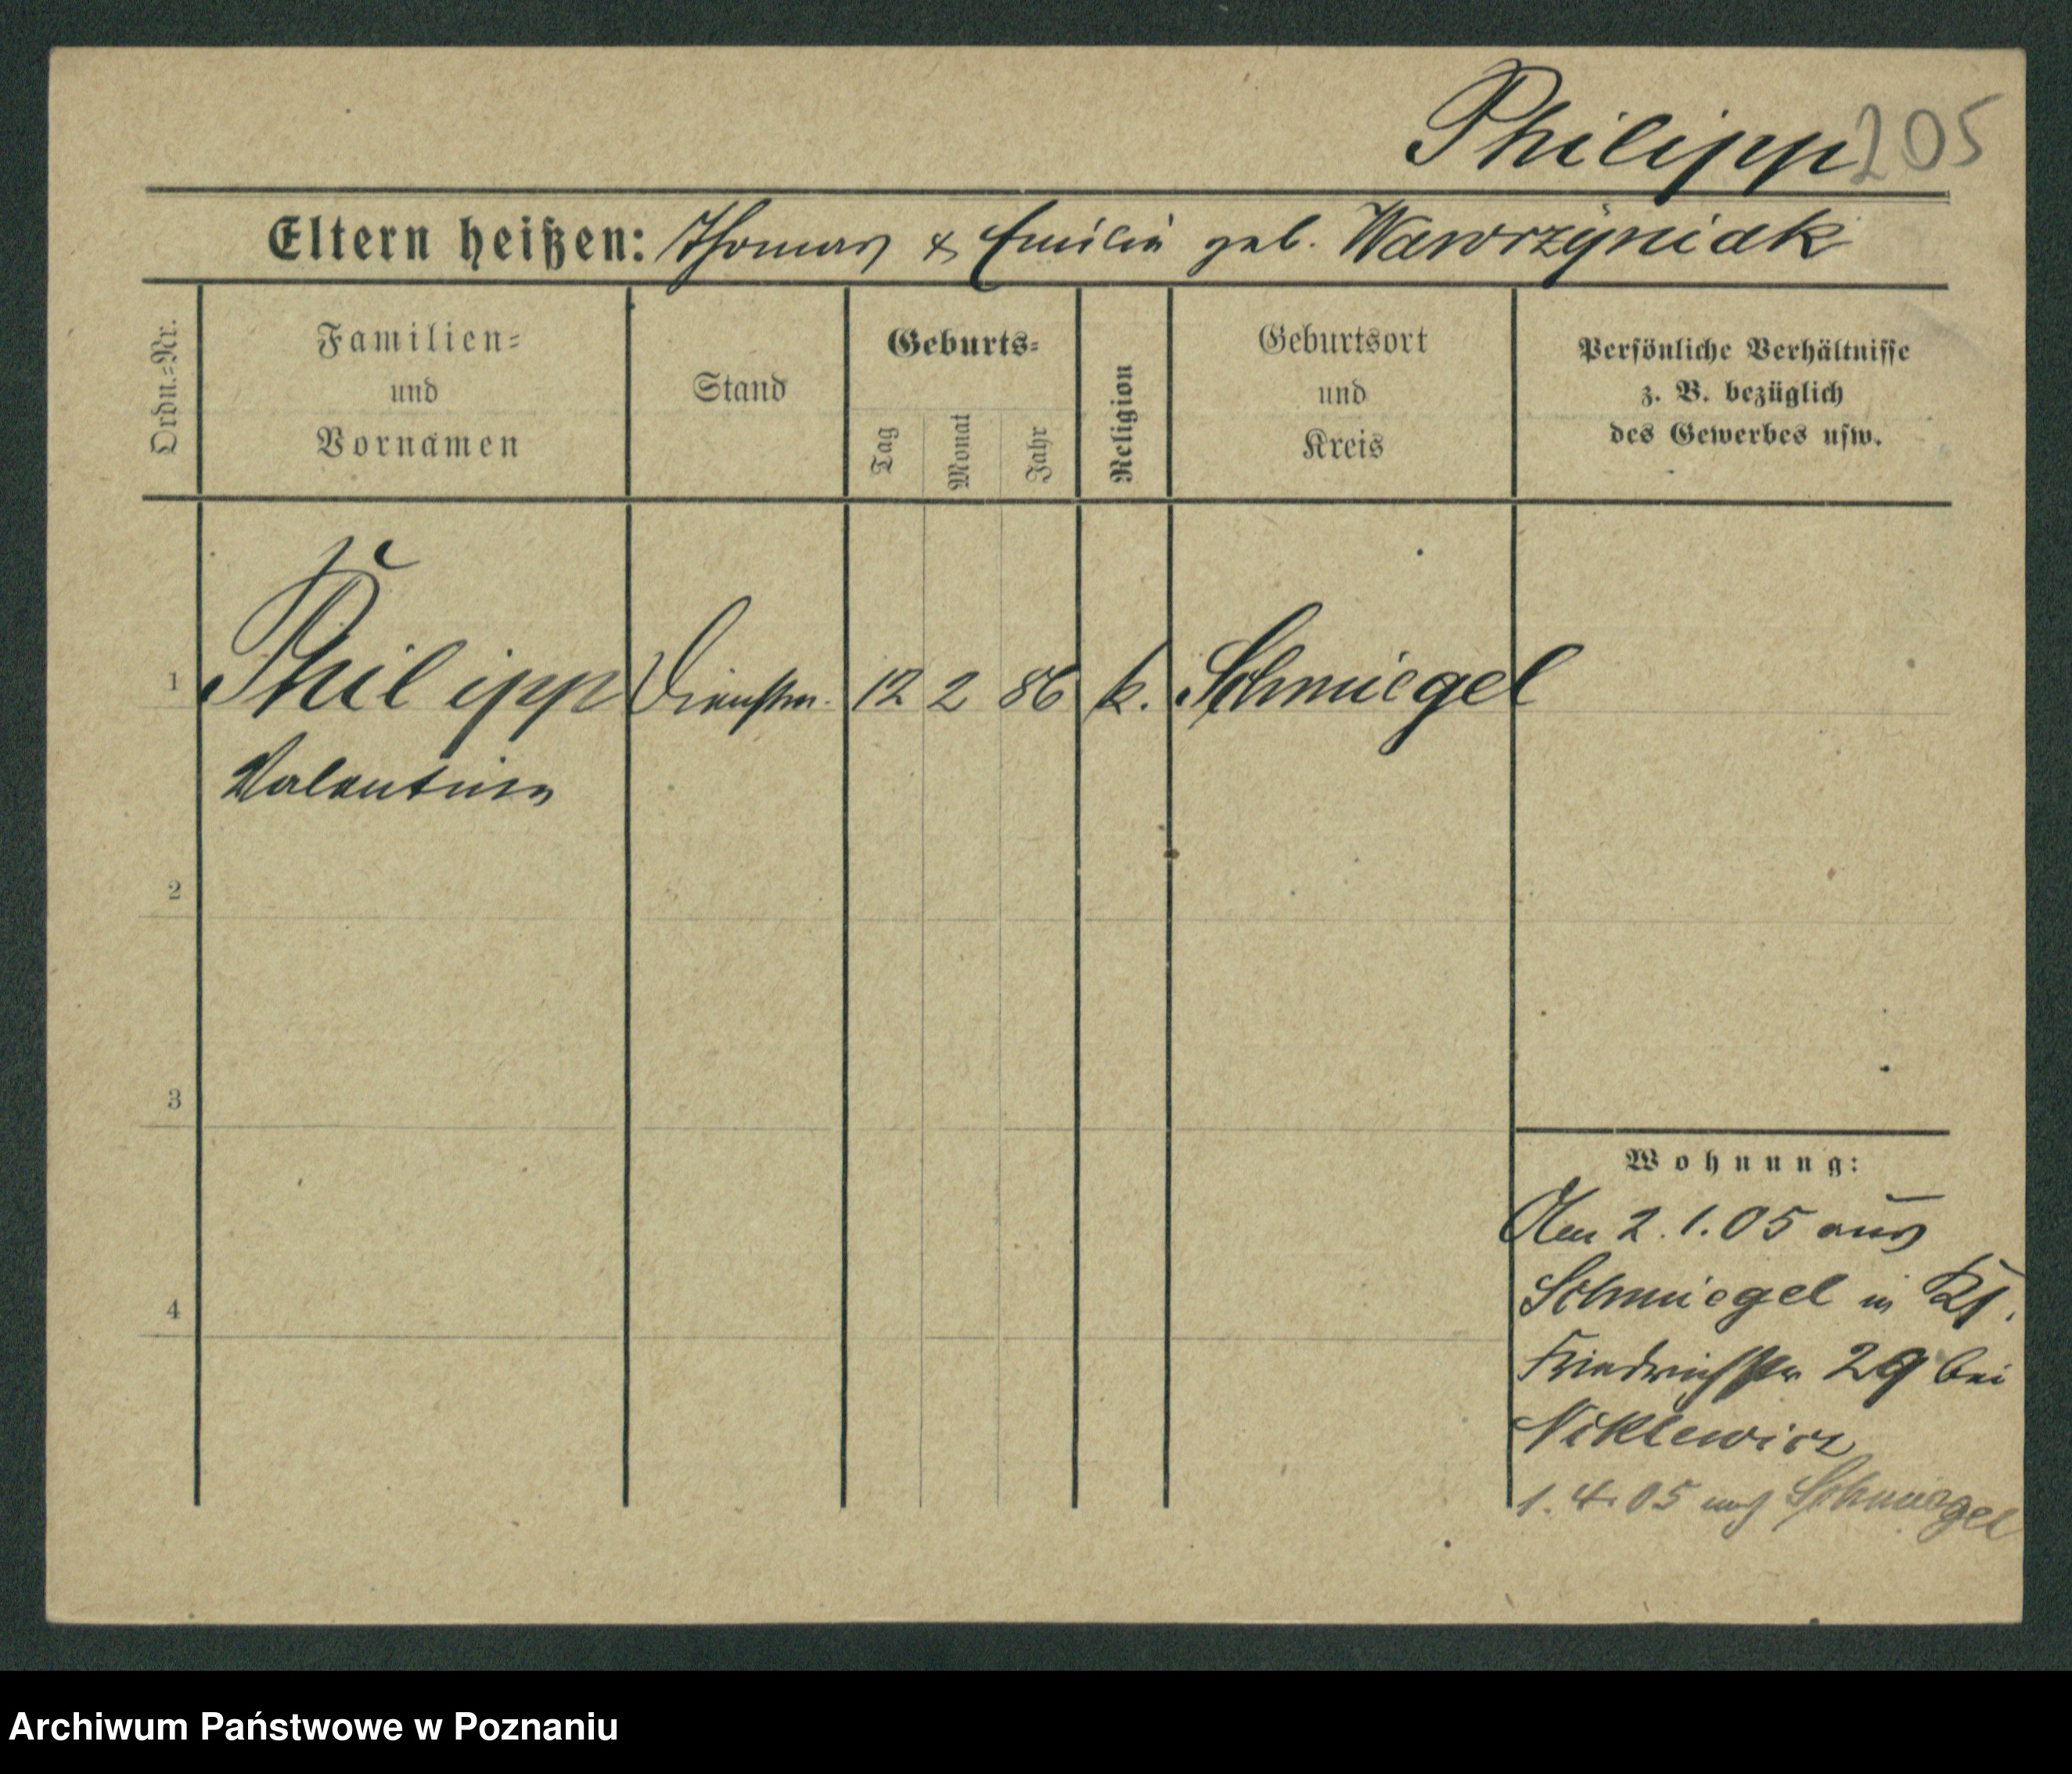 Philipp 205
Eltern heißen: Thomas & Emilia geb. Wawrzyniak
Ordn.=Nr.
Familien=
und
Vornamen
Stand
Geburts=
Tag
Monat
Jahr
Religion
Geburtsort
und
Kreis
Persönliche Verhältnisse
z. B. bezüglich
des Gewerbes usw.
1 Philipp Dienstm. 12 2 86 k. Schmiegel
Valentina
2
3
4
Wohnung:
Am 2.1.05 aus
Schmiegel in
Friedrichstr 29 bei
Niklewicz
1.4.05 nach Schmiegel
Archiwum Państwowe w Poznaniu